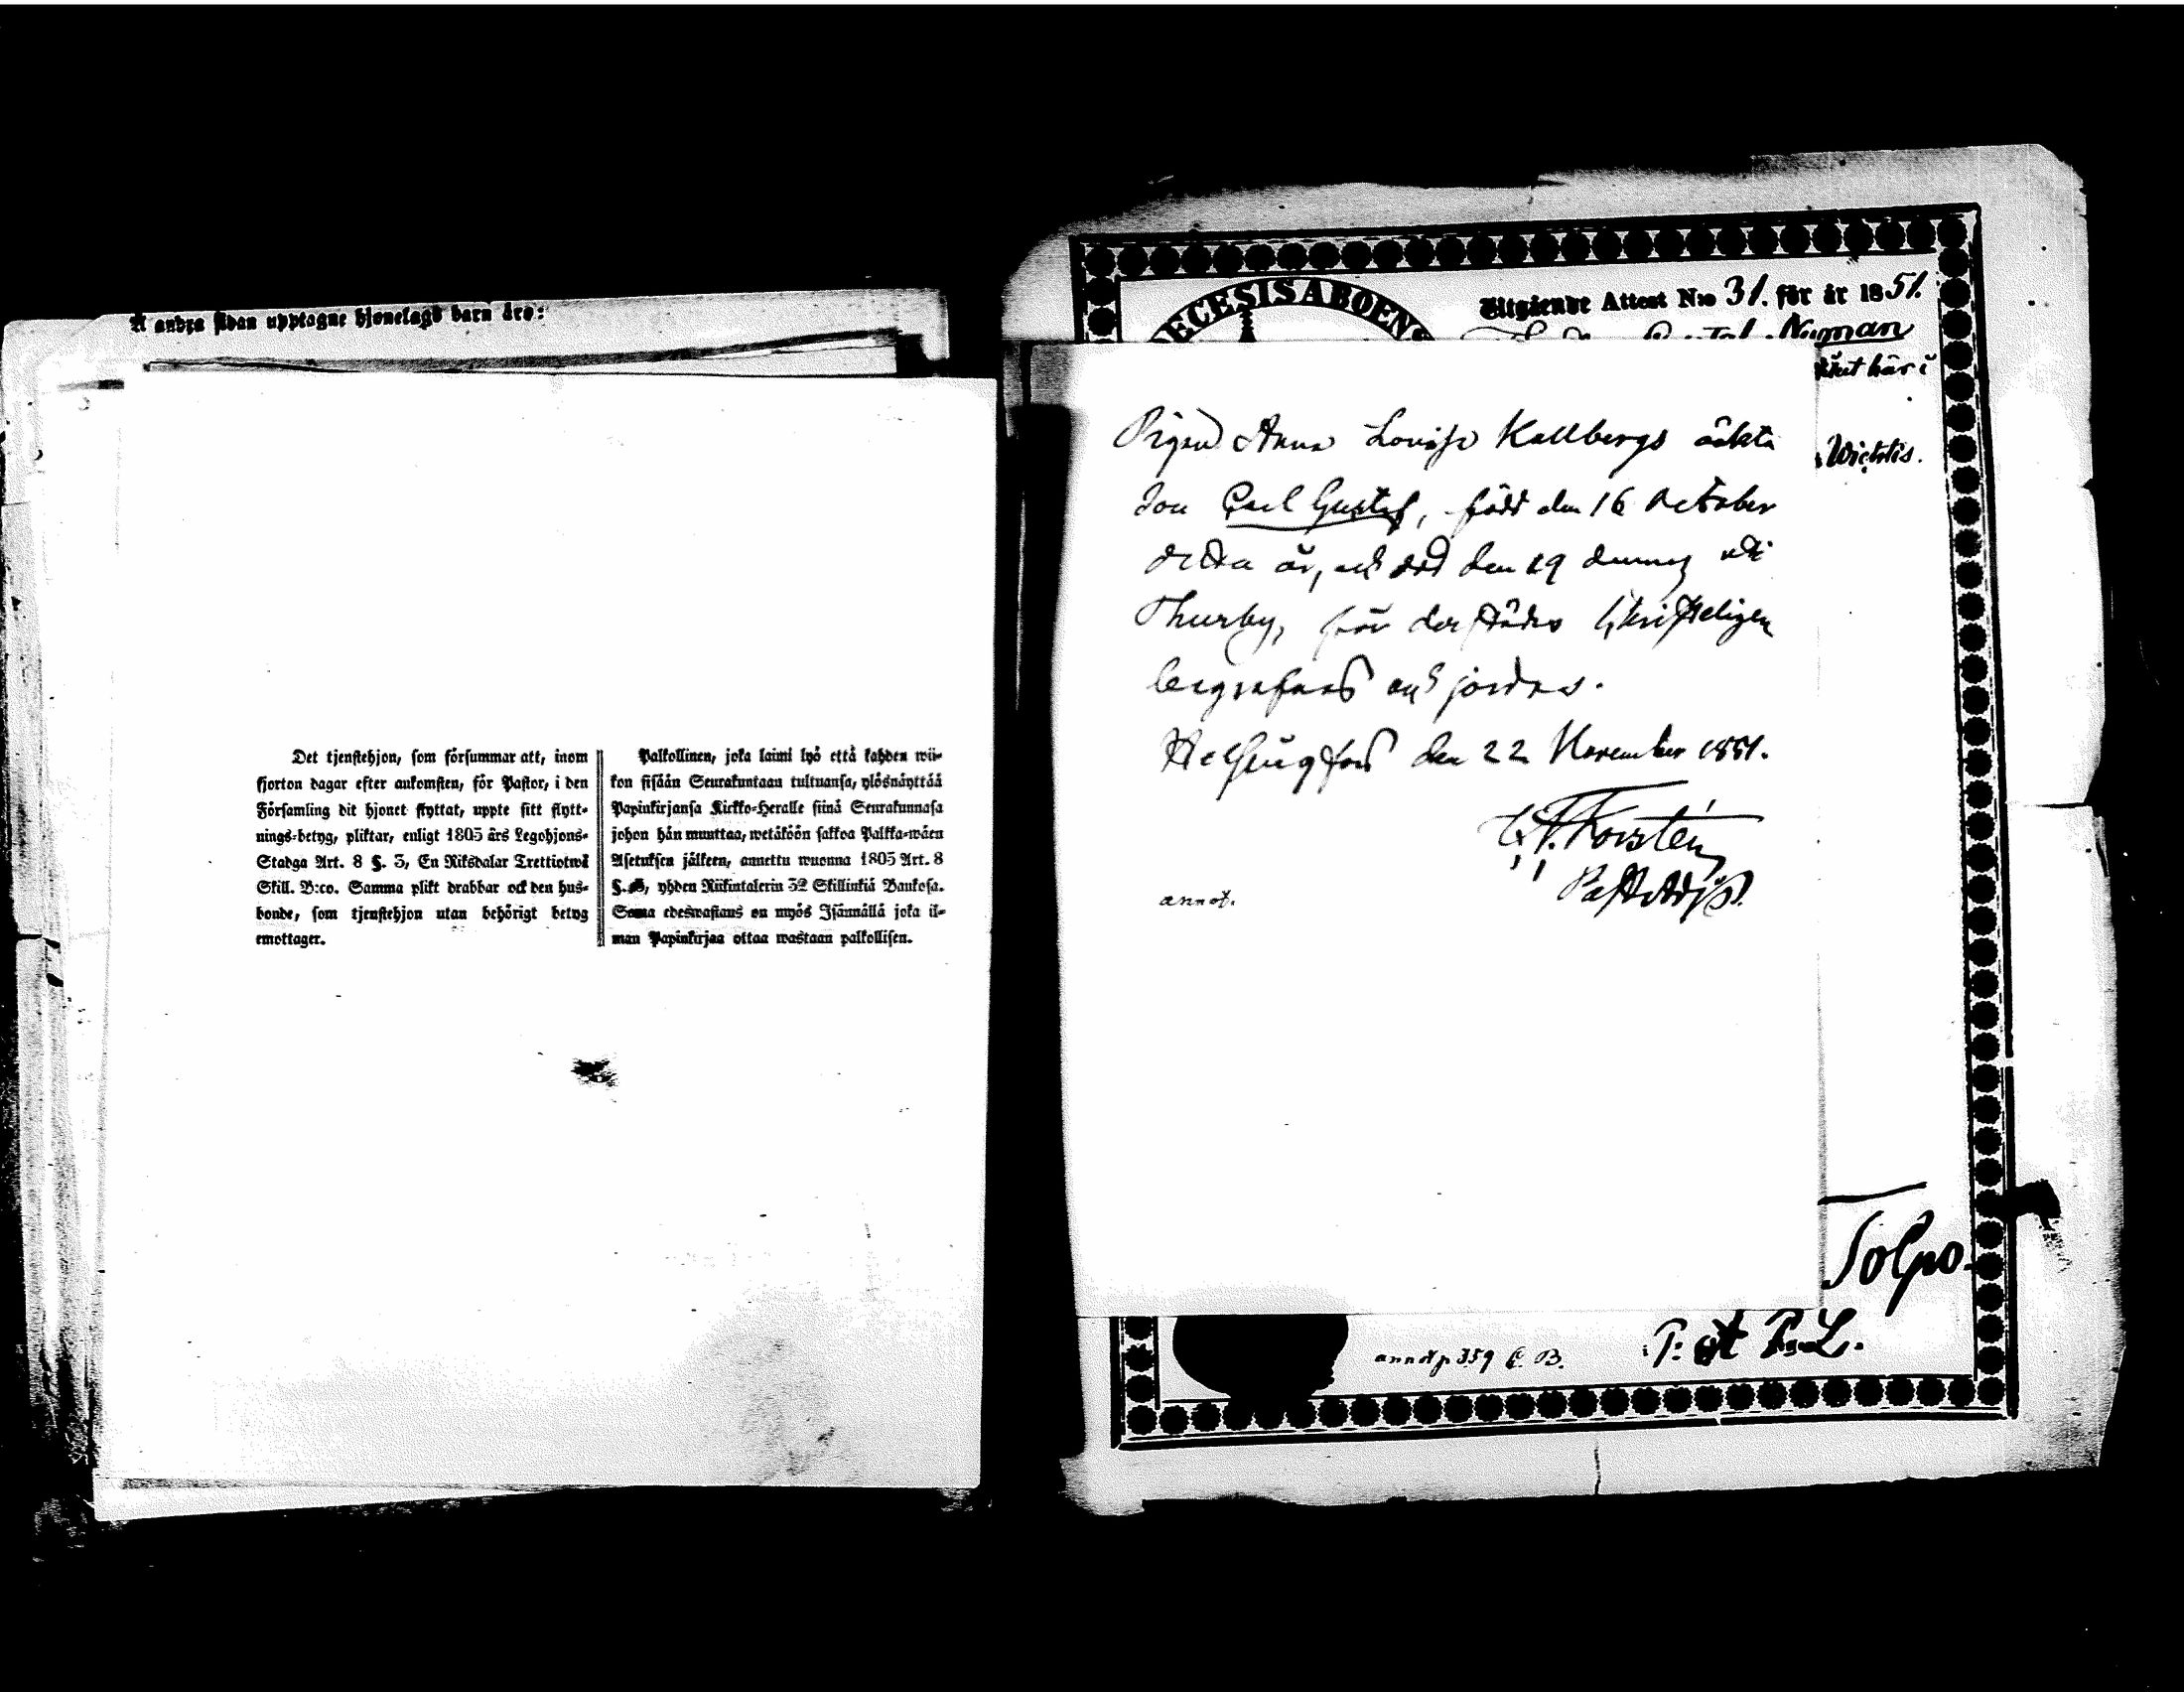 Å andra sidan upptagne hjonelags barn äro:
Det tjenstehjon, som försummar att, inom
fjorton dagar efter ankomsten, för Pastor, i den
Församling dit hjonet flyttat, uppte sitt flytt-
nings-betyg, pliktar, enligt 1805 års Legohjons-
Stadga Art. 8 §. 3, En Riksdalar Trettiotwå
Skill. B:co. Samma plikt drabbar ock den hus-
bonde, som tjenstehjon utan behörigt betyg
emottager.
Palkollinen, joka laimi lyö että kahden wii-
kon sisään Seurakuntaan tultuansa, ylösnäyttää
Papinkirjansa Kirkko-Heralle siinä Seurakunnasa
johon hän muuttaa, wetäköön sakkoa Palkka-wäen
Asetuksen jälkeen, annettu wuonna 1805 Art. 8
§. 3, yhden Riikintalerin 32 Skillinkiä Bankosa.
Sama edeswastaus on myös Isännällä joka il-
man Papinkirjaa ottaa wastaan palkollisen.
DECESIS ABOENS
Utgående Attest No 31. för år 1851.
Gustaf Nyman
här i
Wichtis.
Pigan Anna Lovisa Kallbergs oäkta
son Carl Gustaf, född den 16 October
detta år, och död den 19 dennes uti
Thurby, får derstädes Christeligen
begrafvas och jordas.
Helsingfors den 22 November 1851.
Forstén
Past. Adj.
annot.
Solpo.
annot p 359 C. B.
P. et P. L.